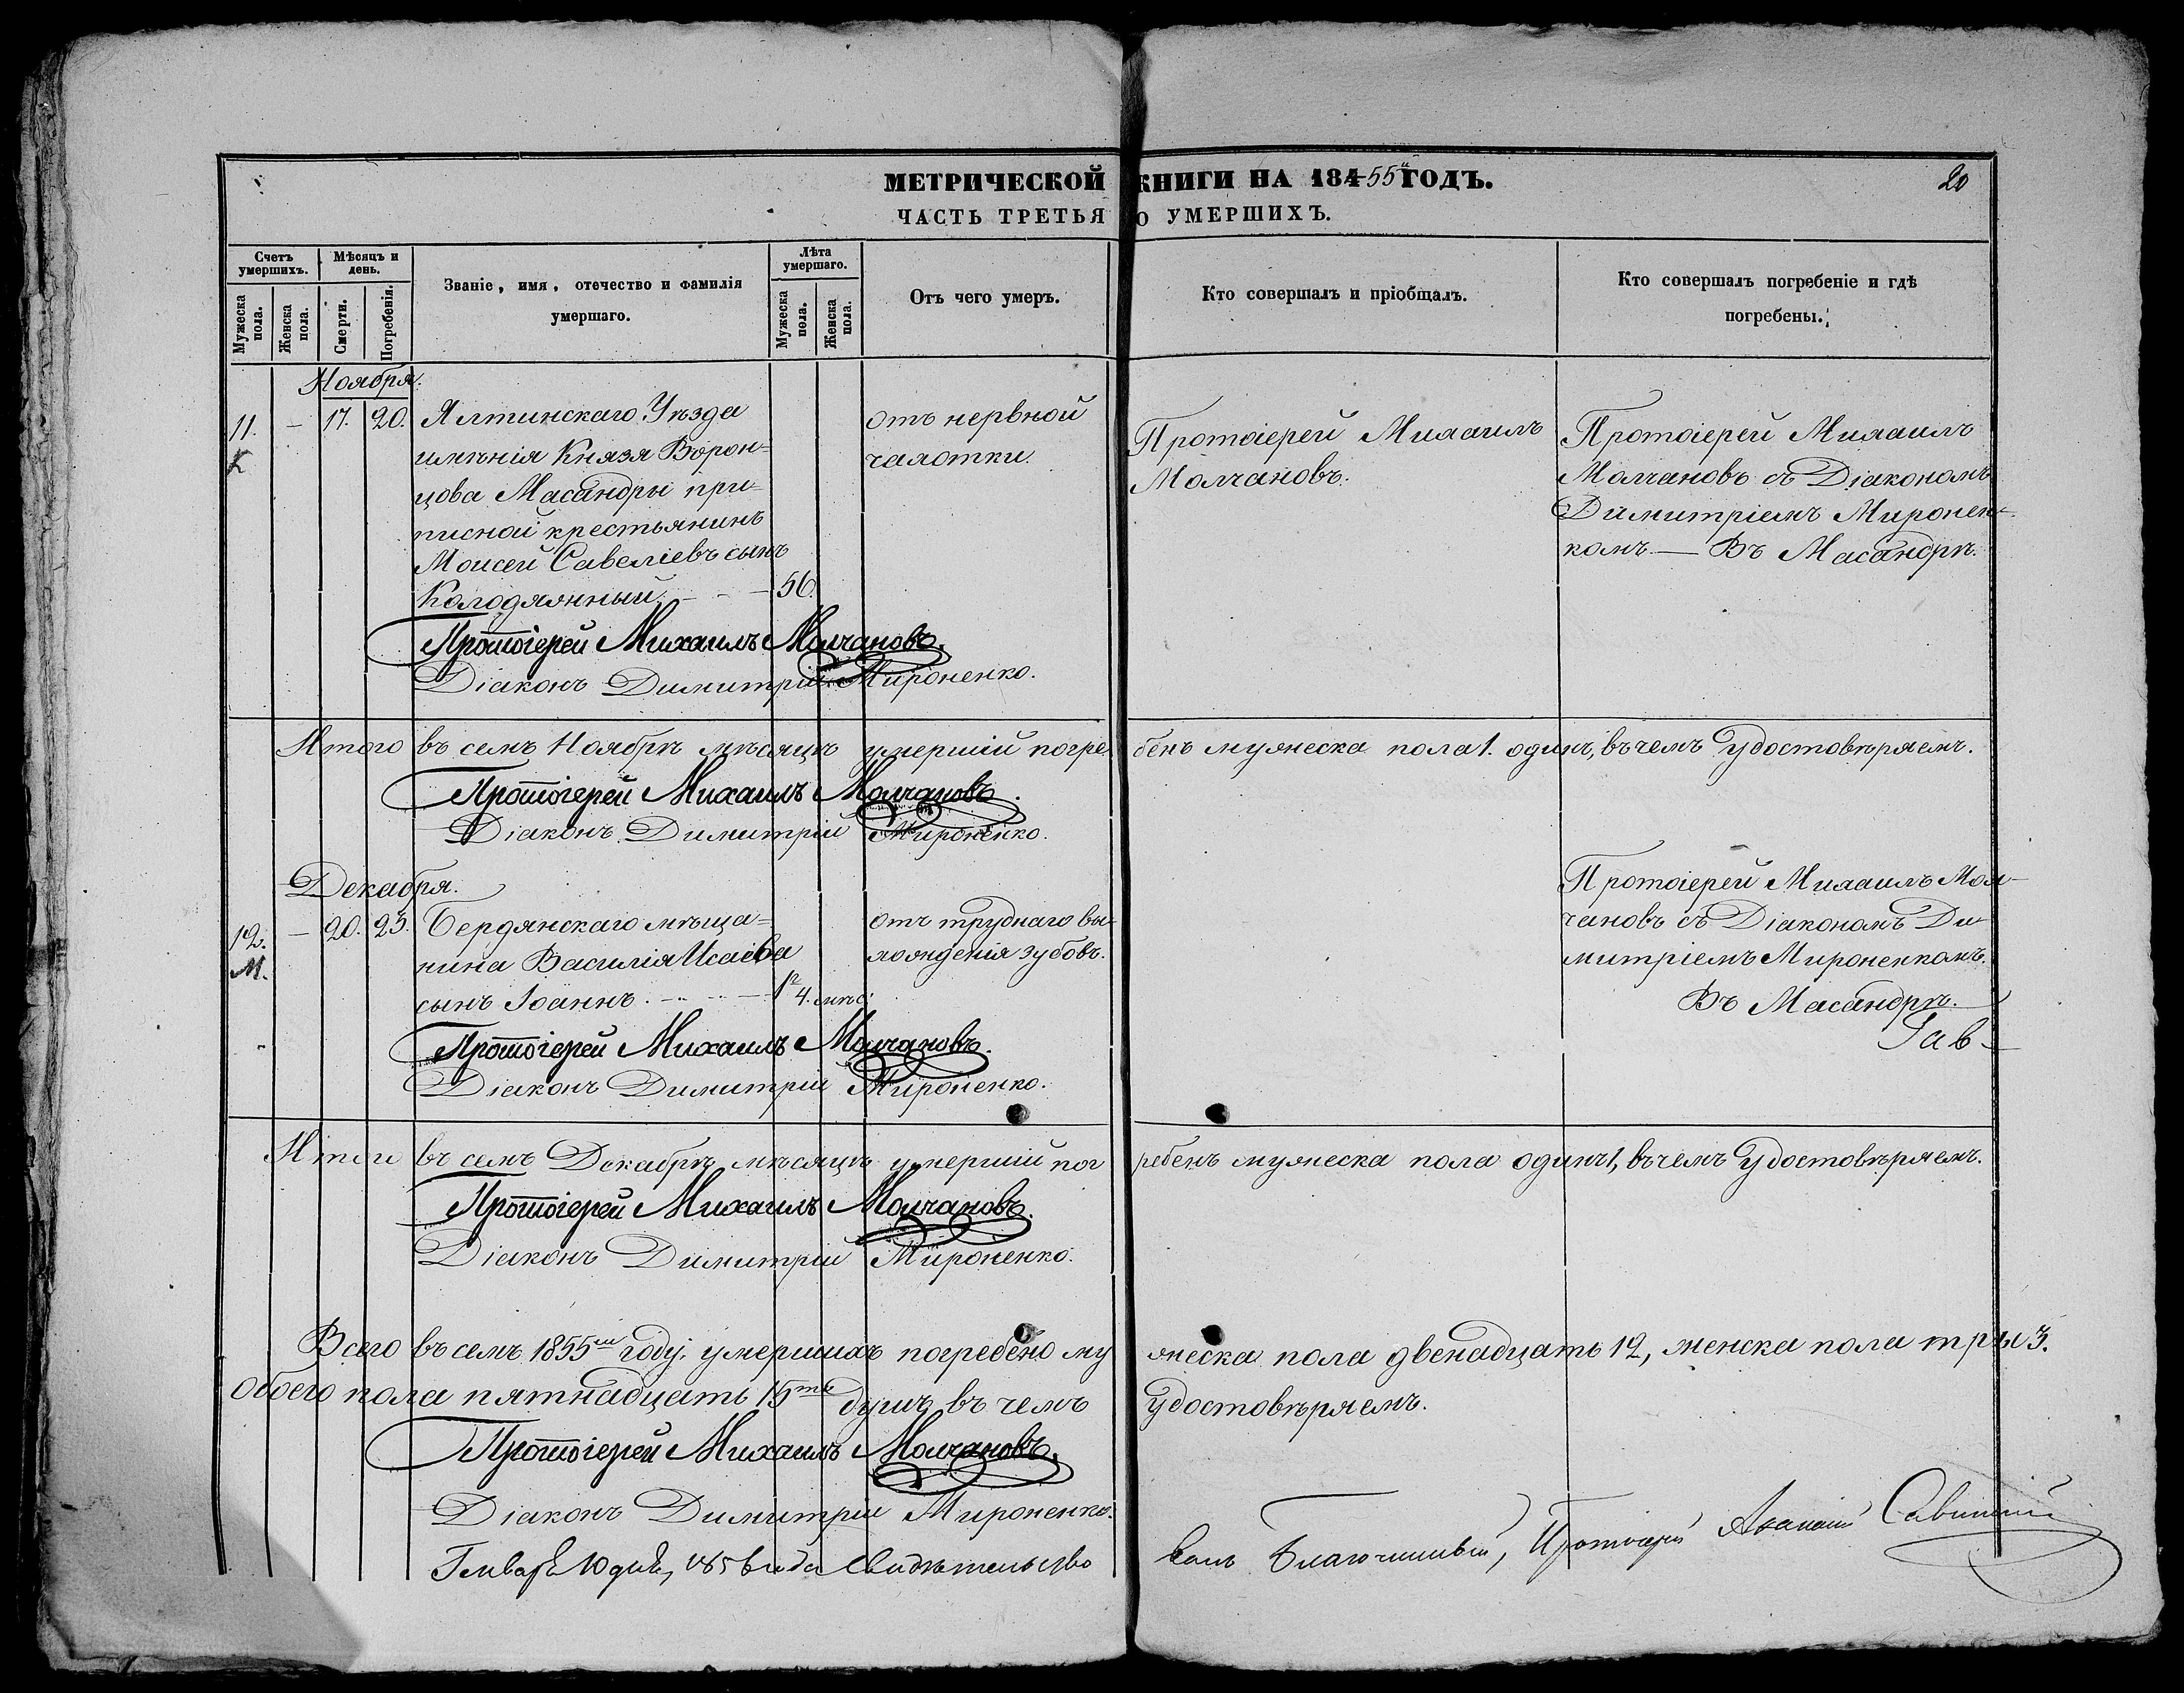 МЕТРИЧЕСКОЙ КНИГИ НА 184-55й ГОДЪ.
20
ЧАСТЬ ТРЕТЬЯ О УМЕРШИХЪ.
Счетъ умершихъ.
Мѣсяцъ и день.
Званіе, имя, отечество и фамилія умершаго.
Лѣта умершаго.
Отъ чего умеръ.
Кто совершалъ и пріобщалъ.
Кто совершалъ погребеніе и гдѣ погребены.
Мужеска пола.
Женска пола.
Смерти.
Погребенія.
Мужеска пола.
Женска пола.
Ноября.
11.
К
—
17.
20.
Ялтинскаго Уѣзда
имѣнія Князя Ворон=
цова Масандры при=
писной крестьянинъ
Моисей Савеліевъ сынъ
Колодяжный. - - -
56.
отъ нервной
чахотки.
Протоіерей Михаилъ
Молчановъ.
Протоіерей Михаилъ
Молчановъ съ Діакономъ
Димитріемъ Миронен-
комъ. — Въ Масандрѣ.
Протоіерей Михаилъ Молчановъ.
Діаконъ Димитрій Мироненко.
Итого въ семъ Ноябрѣ мѣсяцѣ умершій погребенъ мужеска пола 1. одинъ, въ чемъ удостовѣряемъ.
Протоіерей Михаилъ Молчановъ.
Діаконъ Димитрій Мироненко.
Декабря.
12.
М.
—
20.
23.
Бердянскаго мѣща=
нина Василія Исаева
сынъ Іоаннъ.
4. мѣс:
отъ труднаго вы=
хожденія зубовъ.
Протоіерей Михаилъ Мол-
чановъ съ Діакономъ Ди-
митріемъ Мироненкомъ.
Въ Масандрѣ.
Протоіерей Михаилъ Молчановъ.
Діаконъ Димитрій Мироненко.
Итого въ семъ Декабрѣ мѣсяцѣ умершій погребенъ мужеска пола одинъ 1, въ чемъ удостовѣряемъ.
Протоіерей Михаилъ Молчановъ.
Діаконъ Димитрій Мироненко.
Всего въ семъ 1855мъ году, умершихъ погребено мужеска пола двенадцать 12, женска пола три 3.
обоего пола пятнадцать 15ть душъ въ чемъ удостовѣряемъ.
Протоіерей Михаилъ Молчановъ.
Діаконъ Димитрій Мироненко.
10 дня, 1856 года Свидѣтельство
валъ Благочинный, Протоіерей